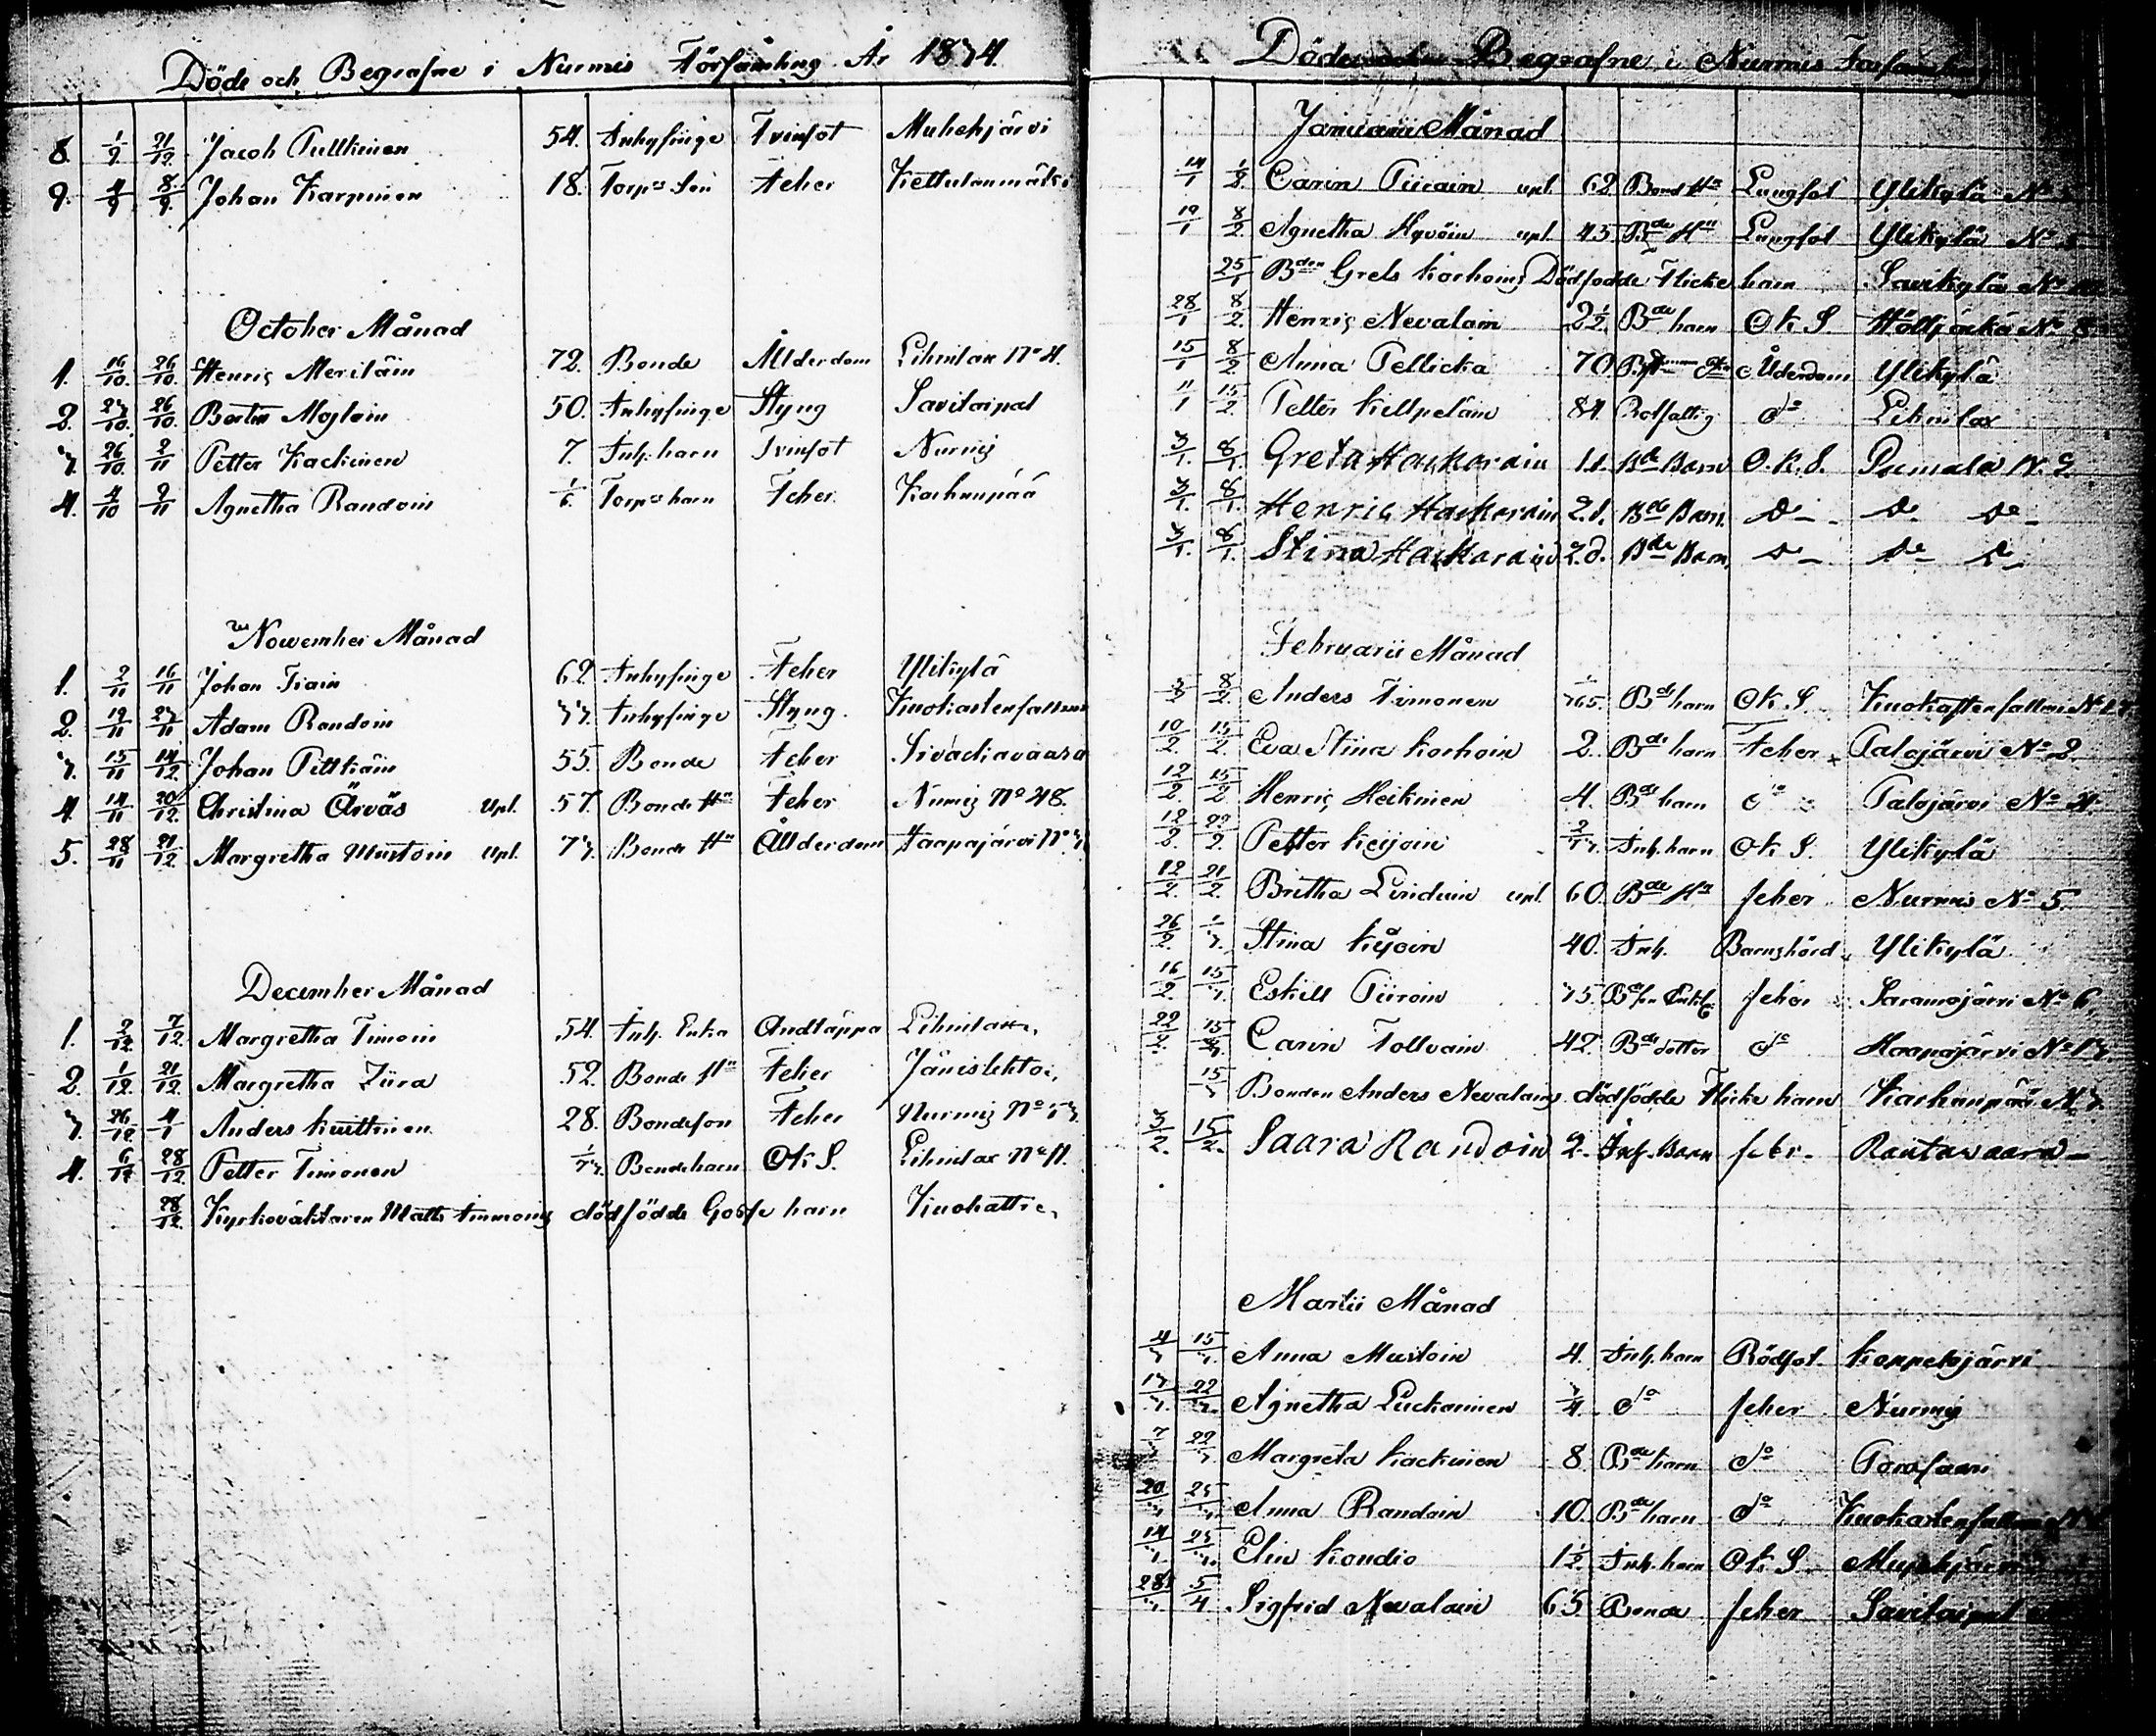 Döde och Begrafne i Nurmis Församling År 1834.
8. 1/9 21/12. Jacob Pullkinen 54. Inhysinge Tvinsot Muhekjärvi
9. 4/9 8/9. Johan Karpinen 18. Torp. Son Feber Kettulanmäki
October Månad
1. 16/10. 26/10. Henric Meriläin 72. Bonde Ålderdom Lihnilax No 4.
2. 23/10. 26/10. Bertil 50. Inhysinge Styng Savikaipal
3. 26/10. 2/11 Petter Kackinen 7. Inh. barn Tvinsot Nurmis
4. 4/10 2/11 Agnetha Randoin 1/6. Torp. barn Feber Karhunpää
November Månad
1. 2/11 16/11 Johan Tiain 62 Inhysinge Feber Ylikylä
2. 19/11 23/11 Adam Randoin 33. Inhysinge Styng. Kuokastensallmi
3. 15/11 14/12. Johan Pittkäin 55. Bonde Feber Sivackavaara
4. 14/11 20/12. Christina Ärväs upl. 57. Bonde Hu Feber Nurmis No 48.
5. 28/11 21/12. Margretha Mustoin upl. 73. Bonde Hu Ållderdom Haapajärvi No 3
December Månad
1. 2/12. 7/12. Margretha Timoin 54. Inh. Enka Andtäppa Lihnilax
2. 1/12. 21/12. Margretha Ziira 52. Bonde Hu Feber Jänislehto
3. 26/12 4/1 Anders Kuittinen 28. Bondeson Feber Nurmis No 53
4. 6/12 28/12. Petter Timonen 1/33. Bonde barn OK S. Lihnilax No 11.
28/12. Kyrkoväktaren Matts Timmoins dödfödde Gosse barn Kuohattie
Döde och Begrafne i Nurmis Församling
Januarii Månad
14/1 1/2. Carin Piirain upl. 62 Bond Hu Lungsot Ylikylä No
19/1 8/2. Agnetha Hyvöin upl. 45 Bde Hu Lungsot Ylikylä No 5
25/1 Bden Grels Korhoins Dödfödde Flicke barn Savikylä No
28/1 8/2. Henric Nevalain 2 1/2. Bde barn OK S. Höljäkä No 8
15/1 8/2 Anna Pellicka 70. Ålderdom Ylikylä
11/1 15/2. Petter Killpeläin 84. Rotfattig do Lihnilax
3/1. 8/1. Greta Hackarain 1 d. Bde Barn O.K.S. Pumala N. 2.
3/1. 8/1. Henric Hackarain 2. d. Bde Barn. do do do
3/1. 8/1. Stina Hackarain 2. d. Bde Barn. do do do
Februarii Månad
3/2 8/2. Anders Timonen 1/365. Bde barn OK S. Kuokastensallmi No
10/2. 15/2. Eva Stina Korhoin 2. Bde barn Feber Palojärvi No 2.
12/2 15/2 Henric Heikinen 4. Bde barn do Palojärvi No 4.
12/2. 22/2. Petter Keijoin 2/33. Inh. barn OK S. Ylikylä
12/2. 21/2. Britha Linduin upl. 60. Bde Hu feber Nurmis No 5.
26/2. 1/3. Stina Kijoin 40. Inh. Barnsbörd Ylikylä
16/2. 15/3. Eskill Piiroin 75. Feber Saramojärvi No 6
22/2. 15/3. Carin Tollvain 42. Bde dotter do Haapajärvi No 13
15/3 Bonden Anders Nevalains dödfödde Flicke barn Karhunpää N. 3.
3/2. 15/2. Saara Randoin 2. Inh. Barn febr. Rautavaara
Martii Månad
4/3 15/3. Anna Mustoin 4. Inh. barn Rödsot Koppelojärvi
13/3. 22/3. Agnetha Luckarinen 3/4. do feber Nurmis
7/3 22/3 Margreta Kackinen 8. Bde barn do Porosaari
20/3 25/3. Anna Randoin 10. Bde barn do Kuokastensallmi
14/3 25/3. Elin Kondio 1 1/2 Inh. barn OK S.
28/3. 5/4 Sigfrid Nevalain 65 Bonde feber Savikaipal